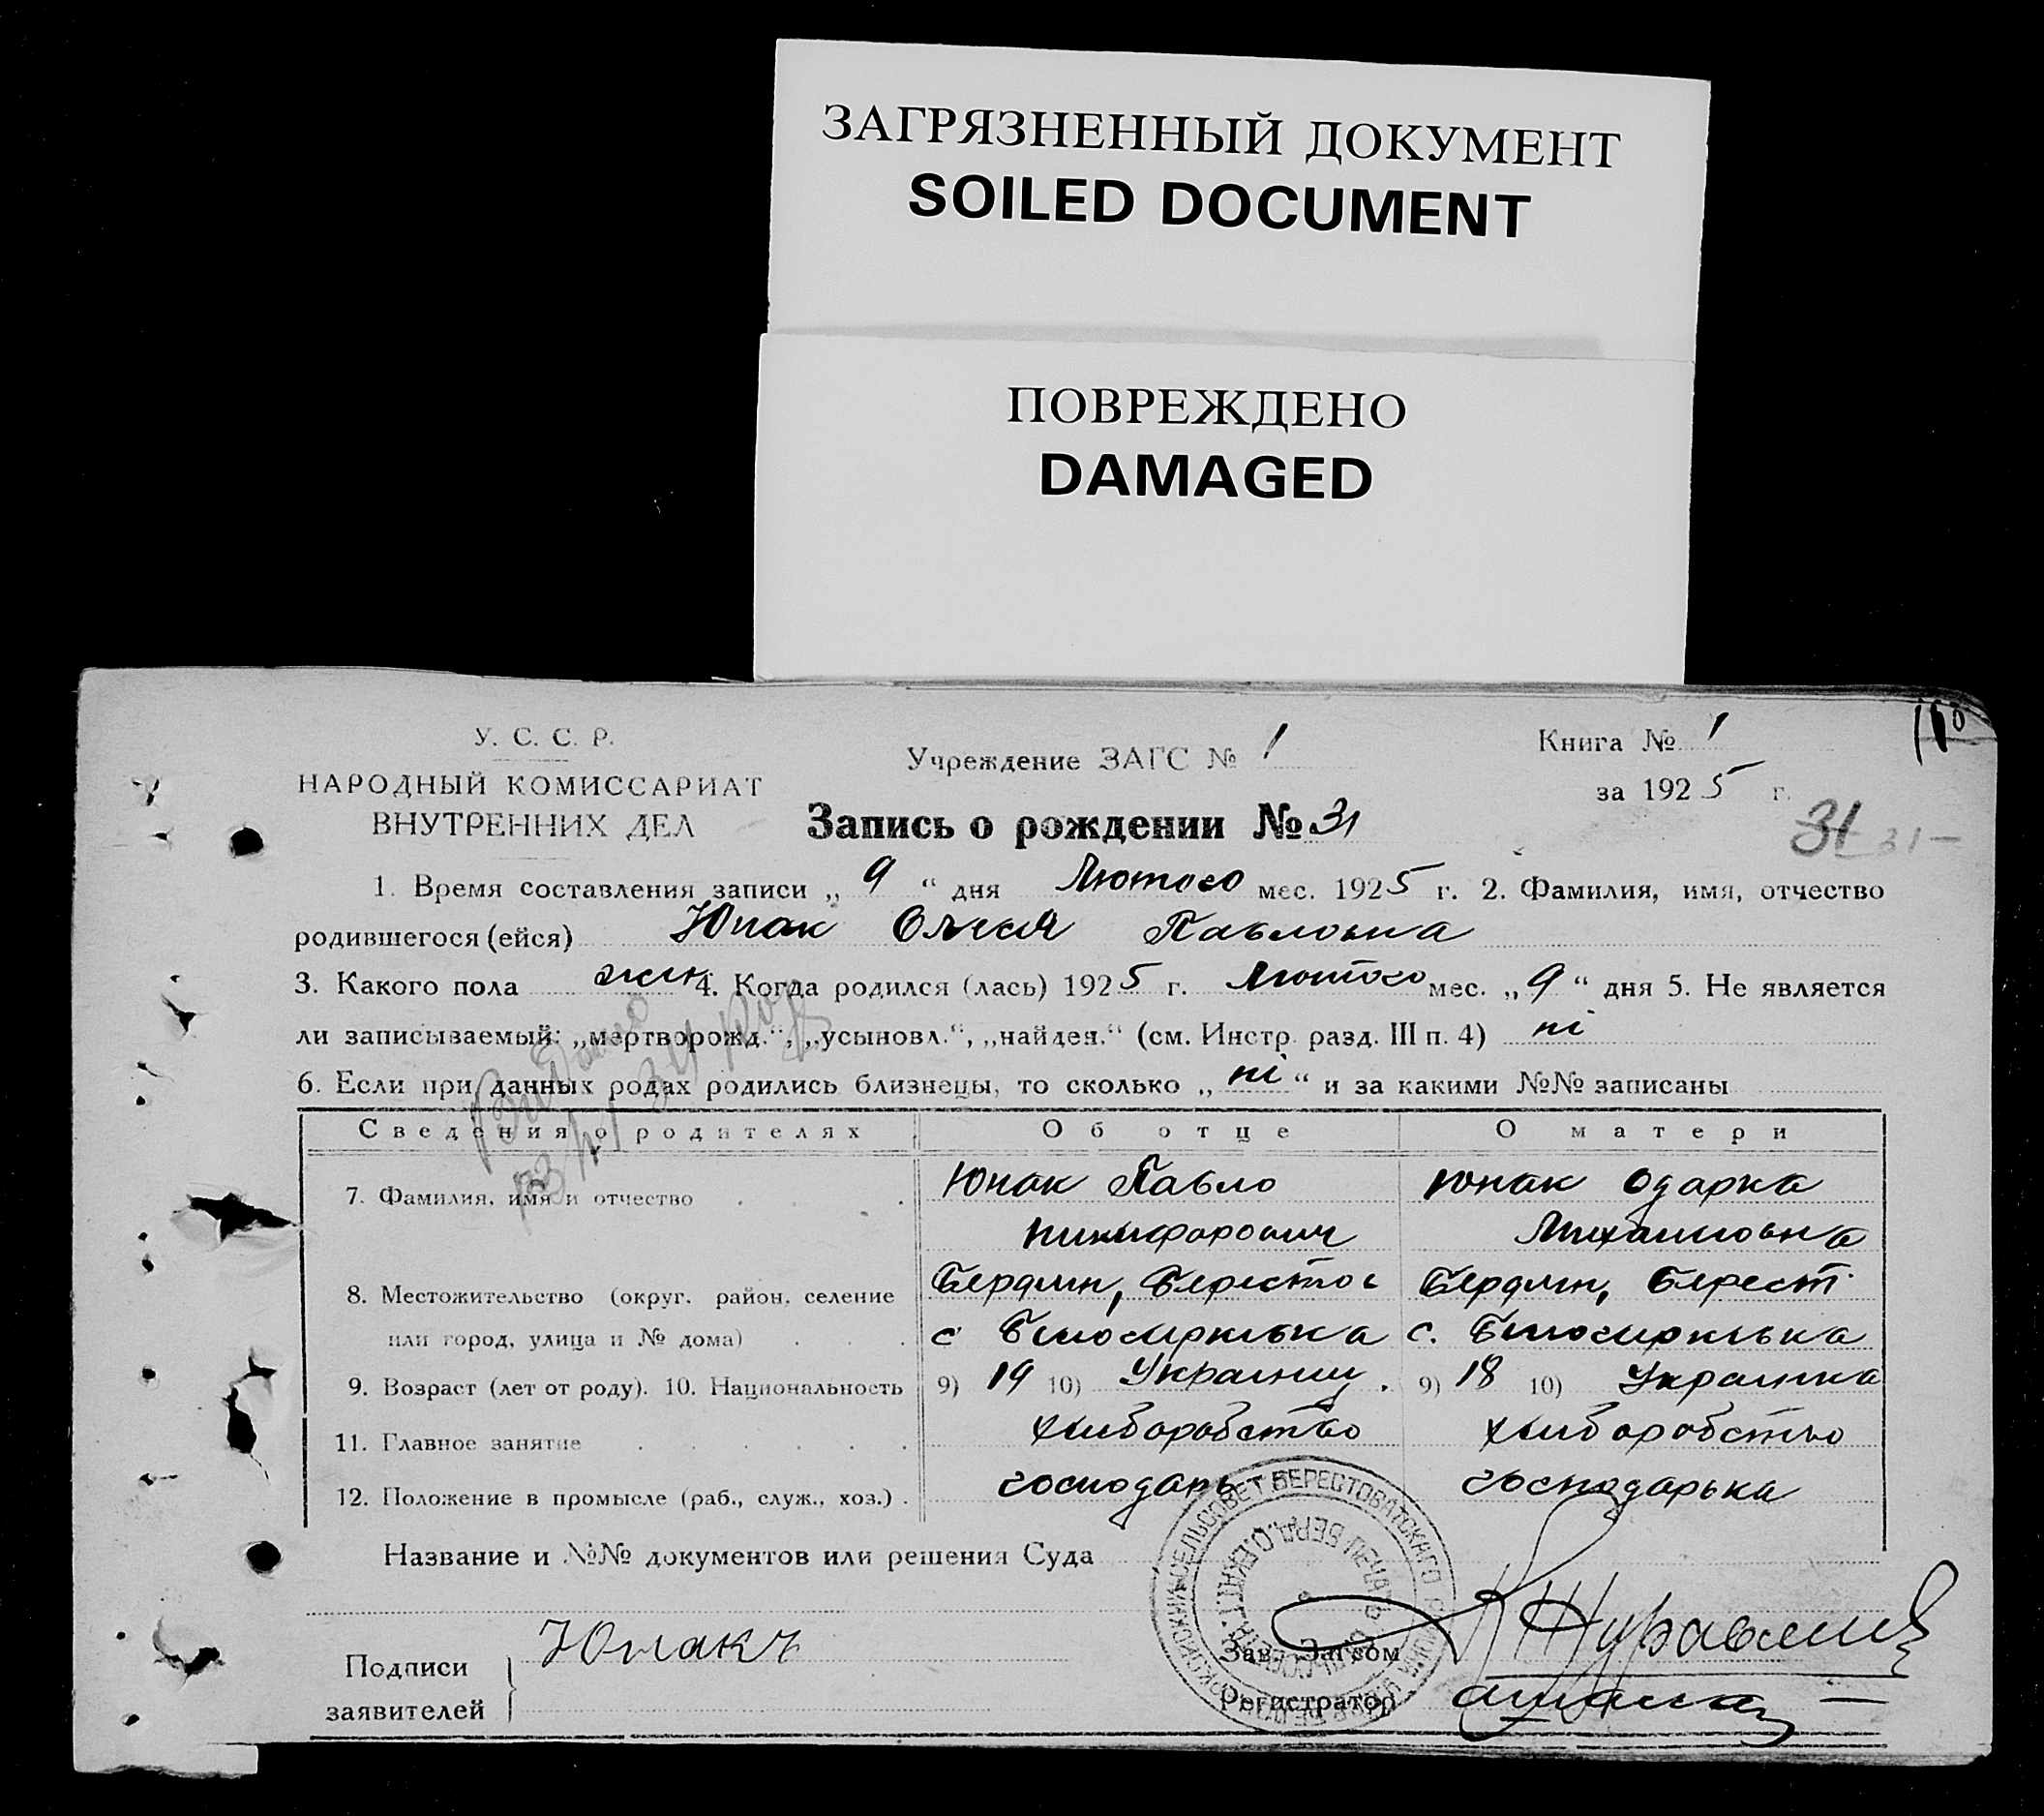 ЗАГРЯЗНЕННЫЙ ДОКУМЕНТ
SOILED DOCUMENT
ПОВРЕЖДЕНО
DAMAGED
У. С. С. Р.
НАРОДНЫЙ КОМИССАРИАТ
ВНУТРЕННИХ ДЕЛ
Учреждение ЗАГС № 1
Книга № 1
за 1925 г.
Запись о рождении № 31
31 31-
1. Время составления записи „ 9 “ дня Лютого мес. 1925 г. 2. Фамилия, имя, отчество
родившегося (ейся) Юнак Павловна
3. Какого пола жін 4. Когда родился (лась) 1925 г. Лютого мес. „ 9 “ дня 5. Не является
ли записываемый: „мертворожд.“, „усыновл.“, „найден.“ (см. Инстр. разд. III п. 4) ні
6. Если при данных родах родились близнецы, то сколько „ ні “ и за какими №№ записаны
Сведения о родителях Об отце О матери
7. Фамилия, имя и отчество Юнак Павло Юнак Одарка
Никифорович Михайловна
8. Местожительство (округ. район. селение Бердян, Берестов Бердян, Берест.
или город, улица и № дома) с. Билоцерківка с. Билоцерківка
9. Возраст (лет от роду). 10. Национальность 9) 19 10) Украинец. 9) 18 10) Украинка
11. Главное занятие хлиборобство хлиборобство
12. Положение в промысле (раб., служ., хоз.) . господарь господарька
Название и №№ документов или решения Суда
Подписи
заявителей
Юнакъ
Зав. Загсом
Регистратор